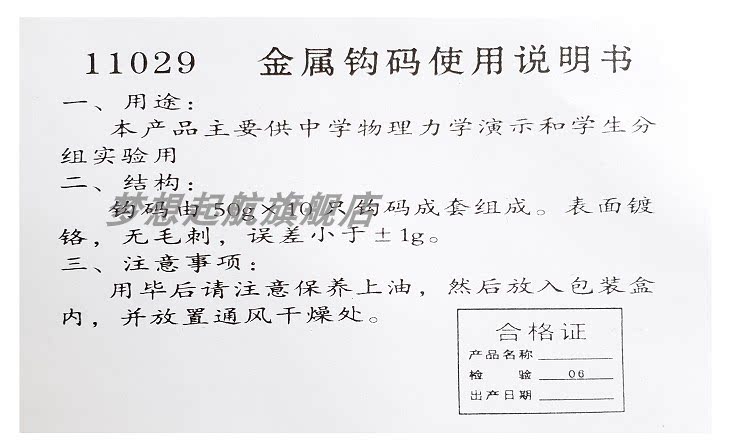 11029 金属钩码使用说明书
一、用途：
本产品主要供中学物理力学演示和学生分
组实验用
二、结构：
钩码由50g×10只钩码成套组成。表面镀
铬，无毛刺，误差小于±1g。
梦想起航旗舰店
三、注意事项：
用毕后请注意保养上油，然后放入包装盒
内，并放置通风干燥处。
合格证
产品名称
检 验 06
出产日期